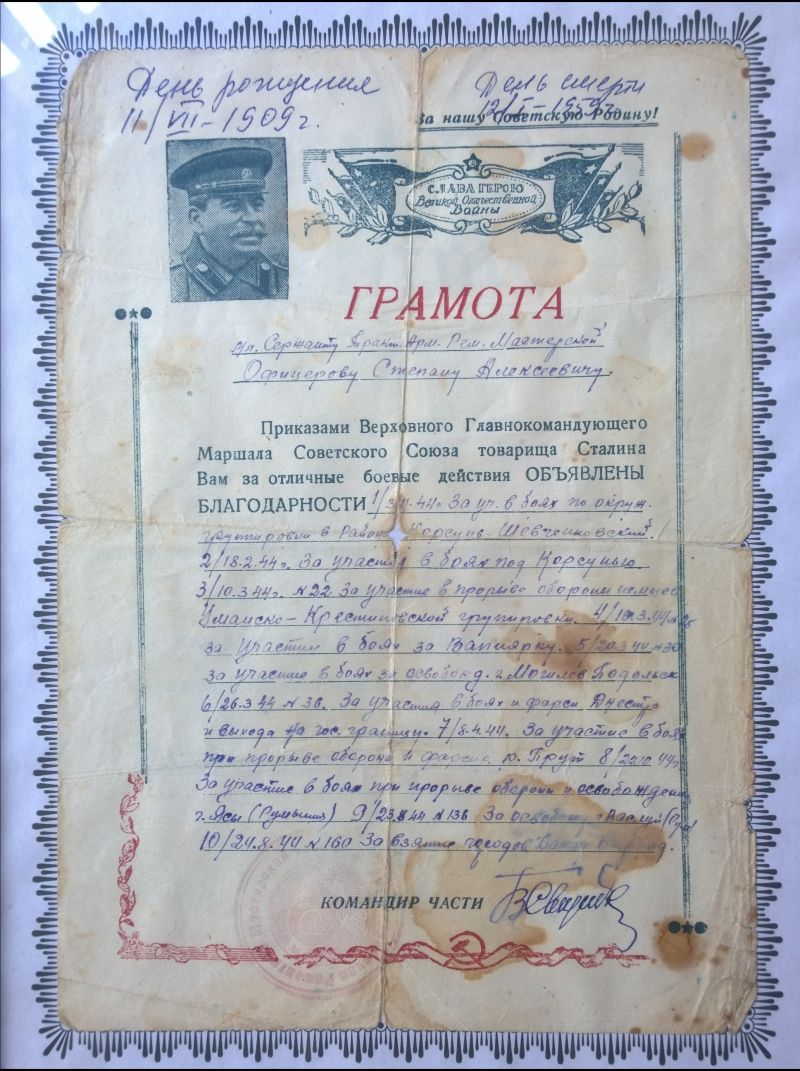 День рождения
11/VII-1909г.
День смерти
12/I-1959г.
За нашу Советскую Родину!
СЛАВА ГЕРОЮ
Великой Отечественной
Войны
ГРАМОТА
Сержанту Тракт. Арм. Рем. Мастерской
Офицерову Степану Алексеевичу.
Приказами Верховного Главнокомандующего
Маршала Советского Союза товарища Сталина
Вам за отличные боевые действия ОБЪЯВЛЕНЫ
БЛАГОДАРНОСТИ 1/ 44г. За уч. в боях по окруж.
группировки в районе Корсунь-Шевченковский.
2/18.2.44г. За участия в боях под Корсунью
3/10.3.44г. N22 За участие в прорыве обороны немцев
Уманско-Крестиновской групировки. 4/
за участие в боях за Вапнярку. 5/20.3.44 N30
за участие в боях за освобожд. г. Могилев Подольск
6/26.3.44 N36. За участия в боях и форси. Днестра
и выхода на гос. границу. 7/8.4.44. За участие в боях
при прорыве обороны и форсир. р. Прут 8/22. 44г
За участие в боях при прорыве обороны и освобождении
г. Ясы (Румыния) 9/23.8.44 N136 За освобожд. г. Васлуй (Рум)
10/24.8.44 N160 За взятие городов
КОМАНДИР ЧАСТИ